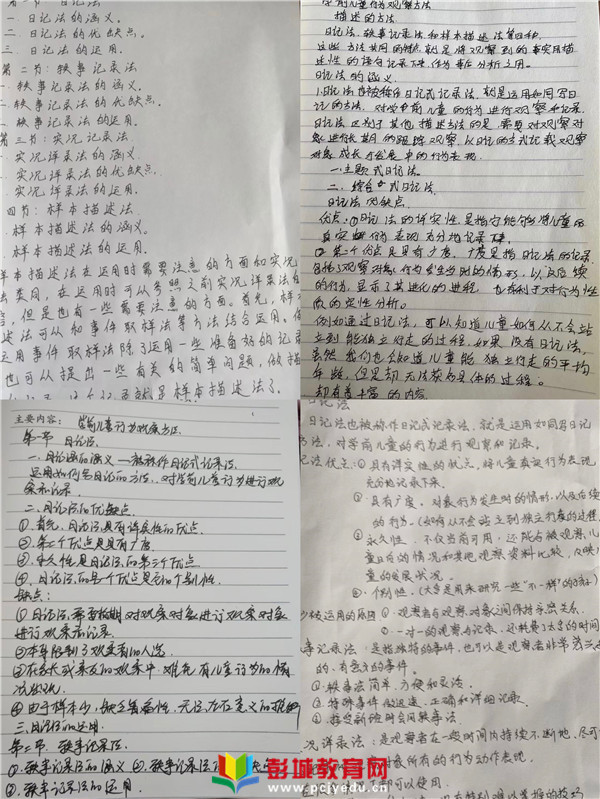 一. 日记法的涵义.
二. 日记法的优缺点.
三. 日记法的运用.
第二节: 轶事记录法
一. 轶事记录法的涵义.
二. 轶事记录法的优缺点.
轶事记录法的运用.
第三节: 实况记录法
实况详录法的涵义.
实况详录法的优缺点.
实况详录法的运用.
四节: 样本描述法
样本描述法的涵义.
样本描述法的运用.
样本描述法在运用时需要注意的方面和实况
法类同, 在运用时可以参照之前实况详录法的
但是也有一些需要注意的方面. 首先, 样本
述法可以和事件取样法等方法结合运用.
运用事件取样法除了运用一些准备好的记录
也可以提出一些有关的简单问题, 做描
就是样本描述法了.
学前儿童行为观察方法
描述的方法
日记法、轶事记录法和样本描述法等四种.
这些方法共同的特点就是将观察到的事实用描
述性的语句记录下来, 作为事后分析之用.
日记法的涵义
1.日记法也被称作日记式记录法, 就是运用如同写日
记的方法, 对学前儿童的行为进行观察和记录.
日记法区别于其他描述方法的是, 需要对观察对
象进行长期的跟踪观察, 以日记的方式记载观察
对象成长和发展中的行为表现.
一.主题式日记法.
二. 综合式日记法.
日记法优缺点.
优点: ①日记法的详实性是指它能够将儿童的
真实行为表现充分地记录下来
② 第二个优点是具有广度. 广度是指日记法的记录
包括了观察对象行为发生当时的情形, 以及后续
的行为, 显示了其进化的进程, 也有利于对行为性
做的定性分析.
例如通过日记法, 可以知道儿童如何从不会站
立到能独立行走的过程, 如果没有日记法,
虽然我们也会知道儿童能独立行走的平均
年龄, 但是却无法获知具体的过程.
却有着丰富的内容.
主要内容: 学前儿童行为观察方法.
第一节 日记法.
一. 日记法的涵义——被称作日记式记录法.
运用如同写日记的方法, 对学前儿童行为进行观
察和记录.
二. 日记法的优缺点.
①. 首先, 日记法具有详实性的优点.
②. 第二个优点是具有广度.
③. 永久性是日记法的第三个优点.
④. 日记法的另一个优点是它的个别性.
缺点:
①日记法, 需要长期对观察对象进行观察对象
进行观察和记录.
②本身限制了观察者的人选.
③在长期或亲友的观察中, 难免有儿童行为的情
④由于样本少, 缺乏普遍性, 无法
三. 日记法的运用.
第二节 轶事记录法.
①. 轶事记录法的涵义 ②. 轶事记录法
③. 轶事记录法的运用.
日记法
日记法也被称作日记式记录法, 就是运用如同写日记
方法, 对学前儿童的行为进行观察和记录.
记法优点: ① 具有详实性的优点, 将儿童真实行为表现
充分地记录下来.
②. 具有广度, 对象行为发生时的情形, 以及后续
的行为. (如有从不会站立到独立行走的过程)
③. 永久性, 不仅当前可用, 还能与被观察儿
童日后的情况和其他观察资料比较, 反映儿
童的发展状况.
④. 个别性, (大多是用来研究一些“不一样”的孩子)
少被运用的原因 ①. 观察者与观察对象之间保持亲密关系.
②. 一对一的观察与记录, 还耗费了太多的时间
事记录法: 是指独特的事件, 也可以是观察者非常
的、有意义的事件.
①. 轶事法简单, 方便和灵活.
②. 特殊事件做迅速、正确和详细记录.
况详录法: 是观察者在一段时间内持续不断地, 尽可
对象所有的行为动作表现.
都可以使用.
彭城教育网
www.pcjyedu.cn